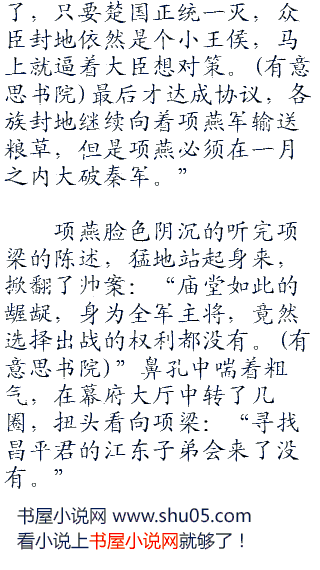 了，只要楚国正统一灭，众
臣封地依然是个小王侯，马
上就逼着大臣想对策。(有意
思书院)最后才达成协议，各
族封地继续向着项燕军输送
粮草，但是项燕必须在一月
之内大破秦军。”
项燕脸色阴沉的听完项
梁的陈述，猛地站起身来，
掀翻了帅案：“庙堂如此的
龌龊，身为全军主将，竟然
选择出战的权利都没有。(有
意思书院)”鼻孔中喘着粗
气，在幕府大厅中转了几
圈，扭头看向项梁：“寻找
昌平君的江东子弟会来了没
有。”
书屋小说网 www.shu05.com
看小说上书屋小说网就够了！